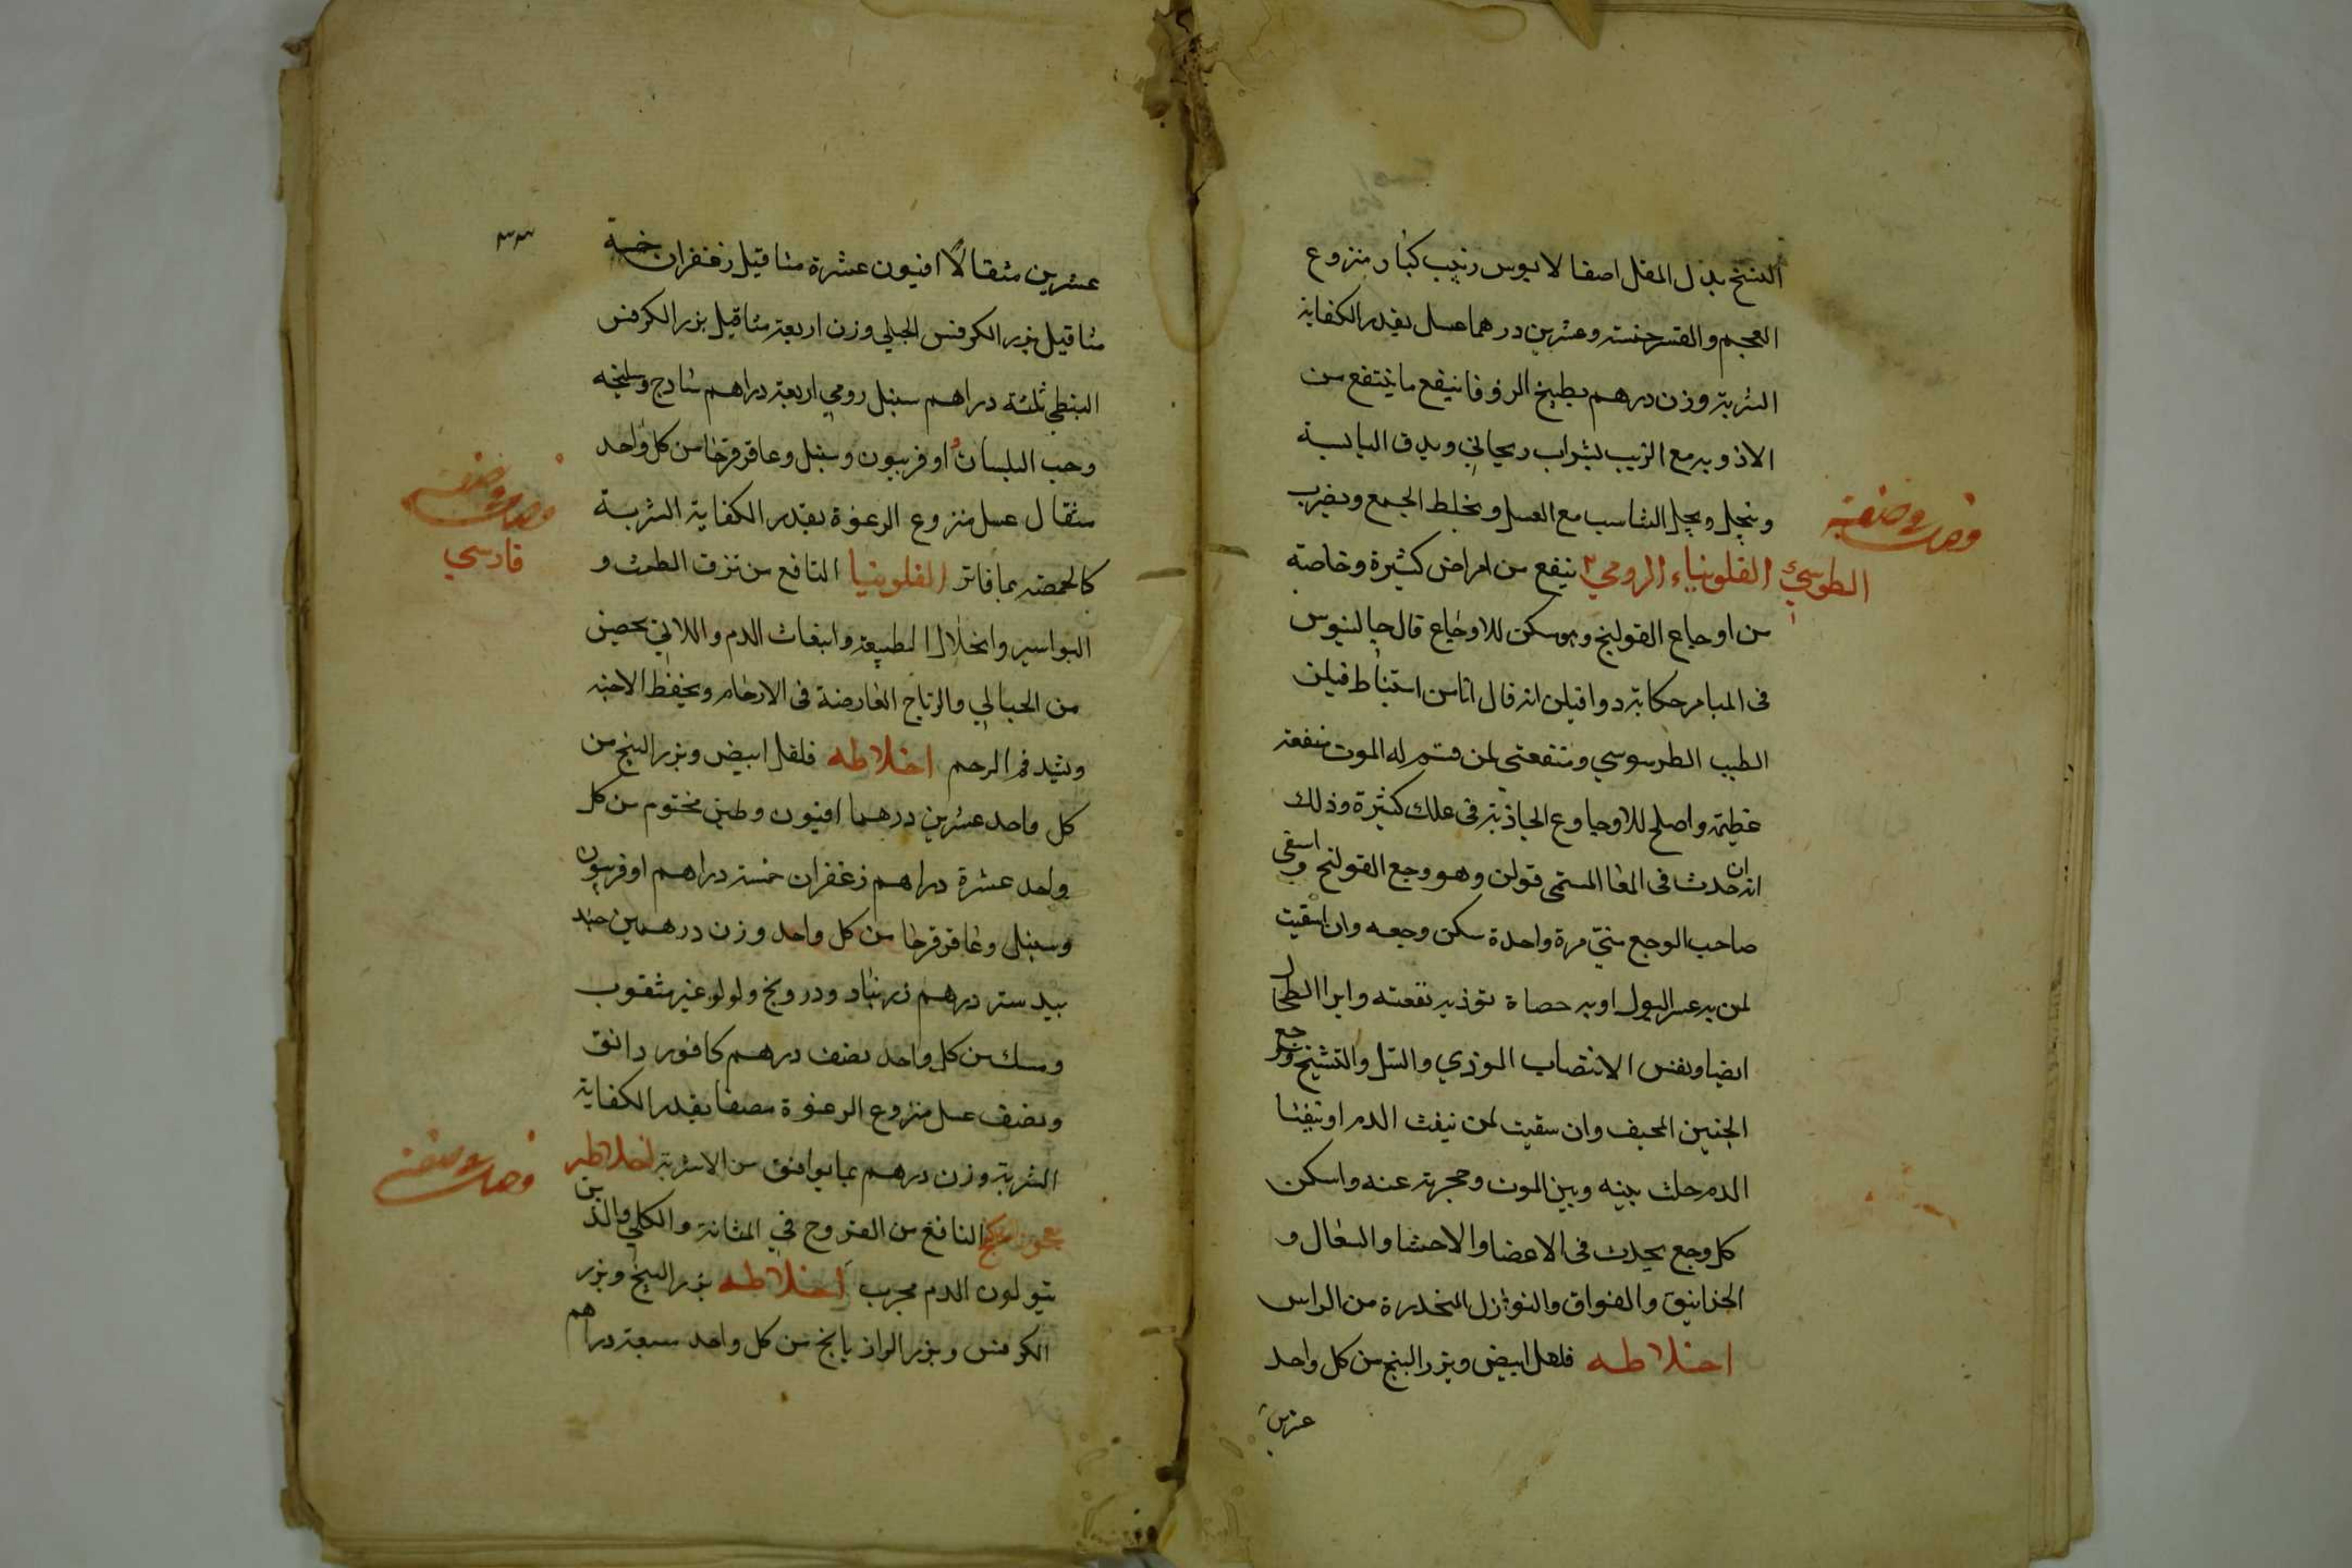 النسخ بدل المقل اصفا لابوس زبيب كبار منزوع
العجم والقشر خمسة وعشرين درهما عسل بقدر الكفاية
الشربة وزن درهم بطبيخ الزوفا نيفع ما ينتفع من
الادويه مع الزبيب بشراب ريحاني ويدق اليابسة
وينخل ويحل الشاسب مع العسل ويخلط الجمع ويضرب
فصل في صفة
الطوسي الفلونياء الرومي ينفع من امراض كثيرة وخاصة
من اوجاع القولنج وهو مسكن للاوجاع قال جالينوس
فى الميامر حكاية دوا فيلن انه قال انا من استنباط فيلن
الطبيب الطرسوسي ومنفعتى لمن قسم له الموت منفعة
عظيمة واصلح للاوجاوع الجاذبة فى علل كثيرة وذلك
انه ان حدث فى المعا المسمى قولن وهو وجع القولنج واسقى
صاحب الوجع منى مرة واحدة سكن وجعه وان اسقيت
لمن به عسر البول او به حصاة توذيه نفعته وابرا الطحال
ايضا ونفس الانتصاب الموذي والسل والتشنج ووجع
الجنبين المحيف وان سقيت لمن ينفث الدم او يتقيا
الدم حلت بينه وبين الموت وحجرته عنه واسكن
كل وجع يحدث فى الاعضا والاحشا والسعال و
الخنانيق والفواق والنوازل المنحدرة من الراس
اخلاطه فلفل ابيض وبزر البنج من كل واحد
عشرين
٣٣
عشرين مثقالا افيون عشرة مثاقيل زعفران خمسة
مثاقيل بزر الكرفس الجبلي وزن اربعة مثاقيل بزر الكرفس
النبطي ثلثة دراهم سنبل رومي اربعة دراهم شادج وسليخه
وحب البلسان و اوفربيون وسنبل وعاقرقرحا من كل واحد
مثقال عسل منزوع الرعوة بقدر الكفاية الشربة
فصل في صفة
فارسي
كالحمصه بما فاتر الفلونيا النافع من نزف الطمث و
البواسير وانحلال الطبيعة وانبعاث الدم واللاتي يحضن
من الحبالي والرياح العارضة فى الارحام ويحفظ الاجنه
ويشد فم الرحم اخلاطه فلفل ابيض وبزر البنج من
كل واحد عشرين درهما افيون وطين مختوم من كل
واحد عشرة دراهم زعفران خمسة دراهم اوفربيون
وسنبل وعاقرقرحا من كل واحد وزن درهمين جند
بيدستر درهم زرنباد ودرونج ولولو غير مثقوب
ومسك من كل واحد نصف درهم كافور دانق
ونصف عسل منزوع الرعوة مصفا بقدر الكفاية
الشربة وزن درهم بما يوافق من الاشربة اخلاطه
فصل في صفة
معجون النافع من القروح في المثانة والكلي والذين
يبولون الدم مجرب اخلاطه بزر البنج وبزر
الكرفس وبزر الرازيانج من كل واحد سبعة دراهم